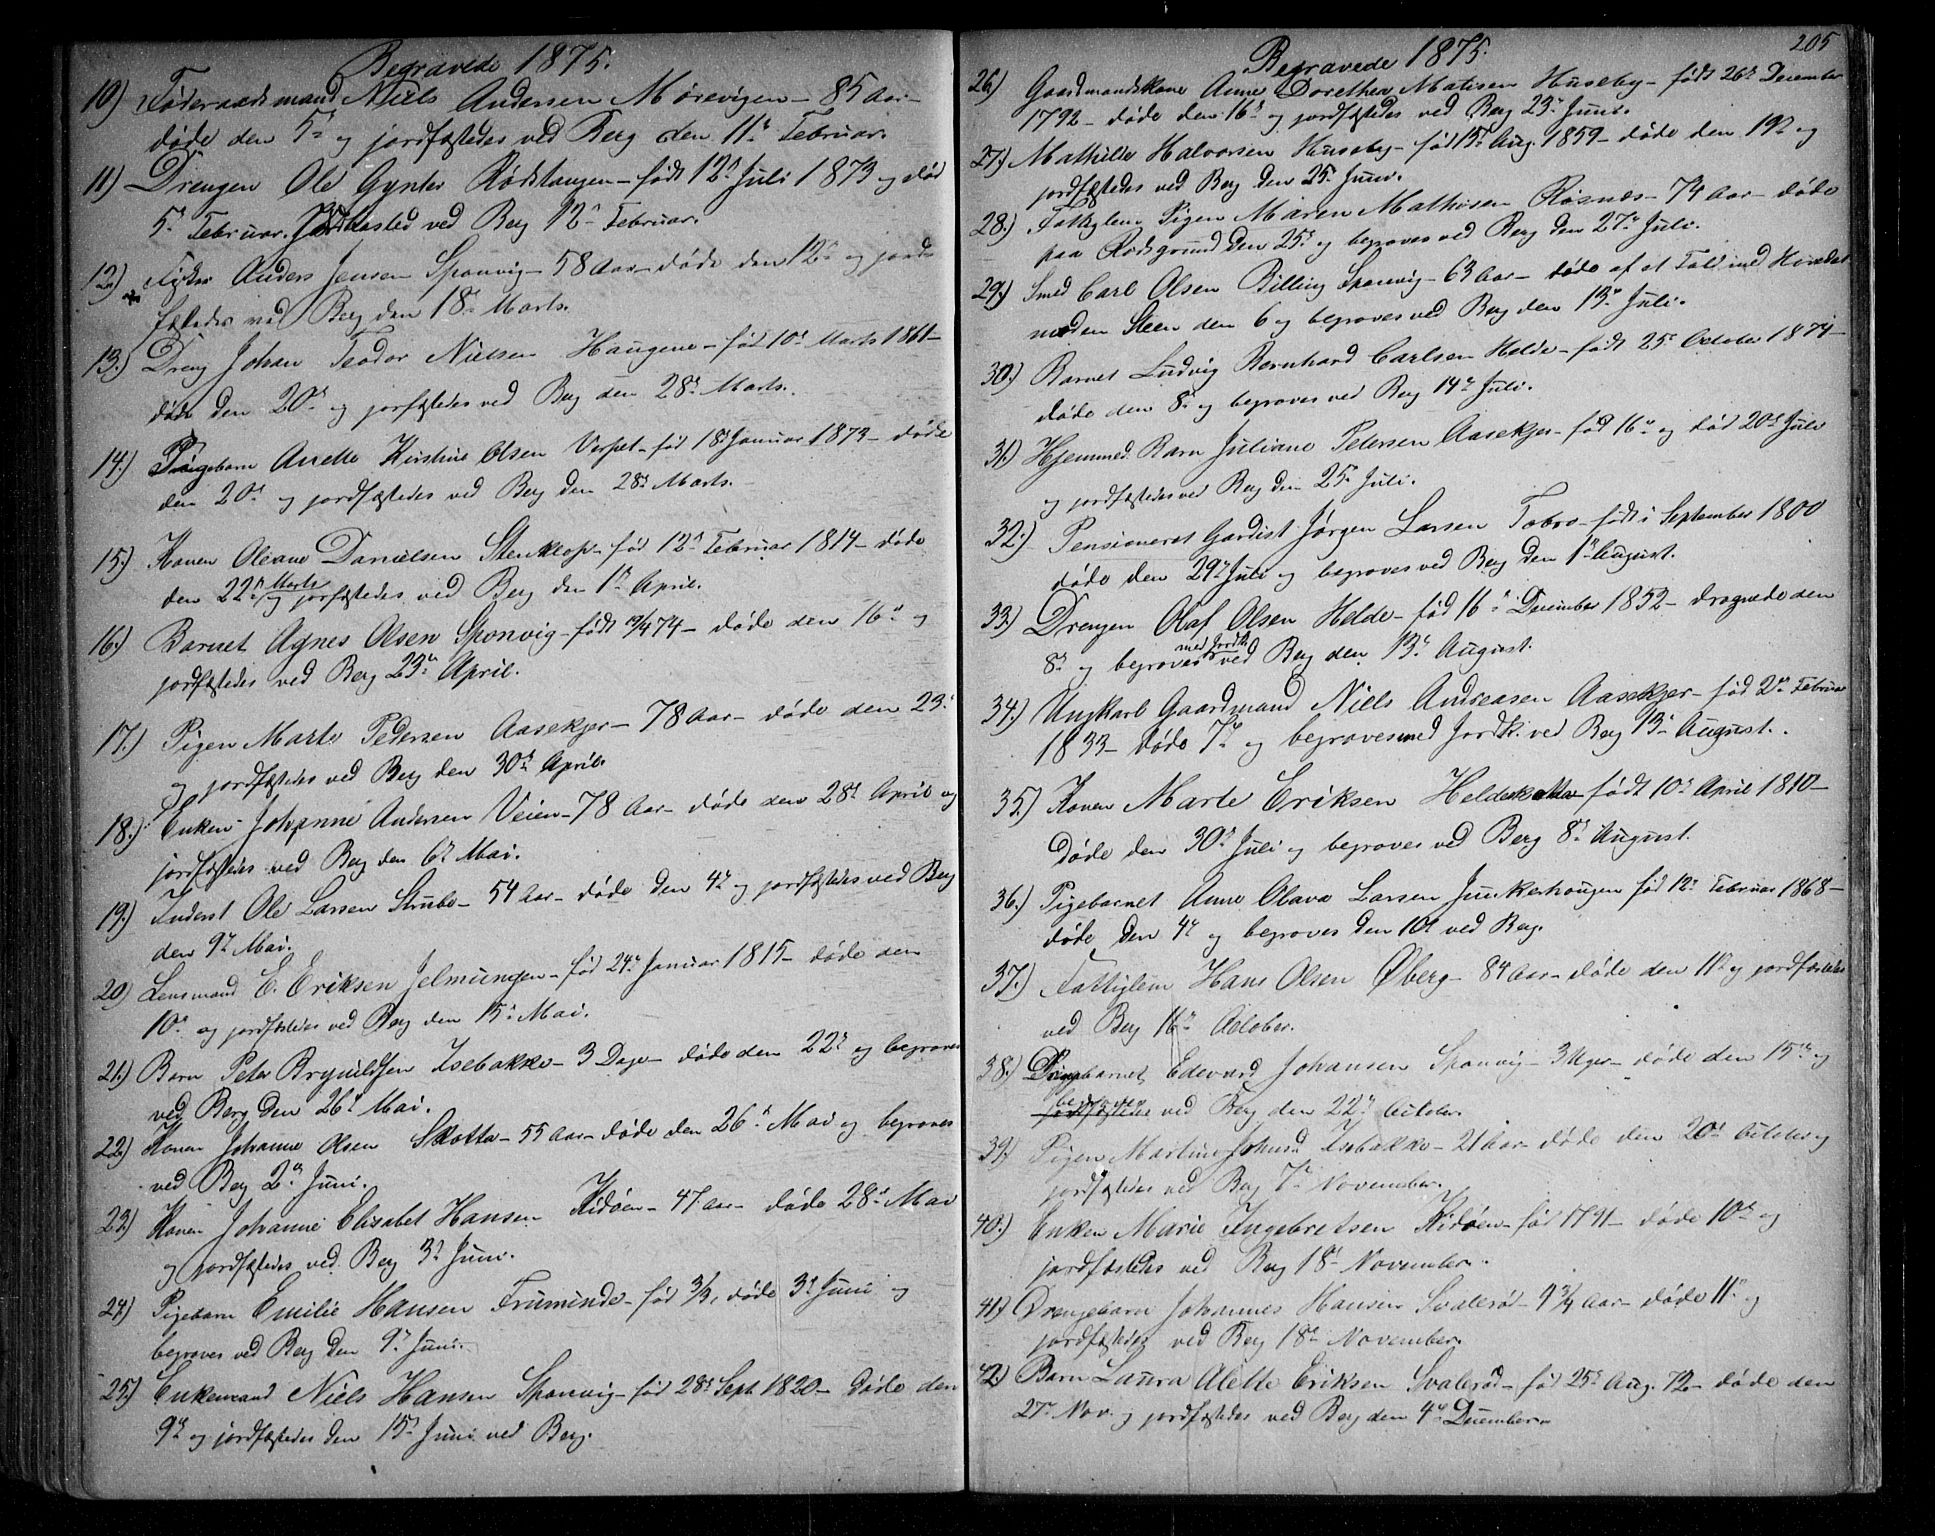 Begravede 1875.
10) Føderaadsmand Niels Andersen Mørevigen - 85 Aar -
døde den 5te og jordfæstedes ved Berg den 11te Februar.
11) Drengen Ole Gynter Rødstangen - født 12te Juli 1873 og død
5te Februar. Jordfæsted ved Berg 12te Februar.
12) Anders Jensen Sponvig - 58 Aar - døde den 12te og jord-
fæstedes ved Berg den 18te Marts.
13.) Dreng Johan Teodor Nielsen Haugene - fød 10de Marts 1861 -
døde den 20de og jorfæstedes ved Berg den 28de Marts.
14.) Pigebarn Anette Kirstine Olsen Verpet - fød 18de Januar 1873 - døde
den 20de og jordfæstedes ved Berg den 28de Marts.
15.) Konen Oleane Danielsen Stenklop - fød 12te Februar 1814 - døde
den 22de Marts og jorfæstedes ved Berg den 1te April.
16.) Barnet Agnes Olsen Sponvig - født 74 - døde den 16de og
jordfæstedes ved Berg 23de April.
17.) Pigen Marte Pedersen Aasekjer - 78 Aar - døde den 23de
og jordfæstedes ved Berg den 30de April.
18.) Enken Johanne Andersen Veien - 78 Aar - døde den 28de April og
jordfæstedes ved Berg den 6te Mai.
19.) Inderst Ole Larsen Strube - 54 Aar - døde den 4de og jordfæstedes ved Berg
den 9de Mai.
20) Lensmand E. Eriksen Jelmungen - fød 24de Januar 1815 - døde den
10de og jordfæstedes ved Berg den 15de Mai.
21.) Barn Peter Brynildsen Isebakke - 3 Dage - døde den 22de og begroves
ved Berg den 26de Mai.
22.) Konen Johanne Olsen Skotta - 55 Aar - døde den 26de Mai og begroves
ved Berg 2den Juni.
23.) Konen Johanne Elisabet Hansen Kidøen - 47 Aar - døde 28de Mai
og jordfæstedes ved Berg 3de Juni.
24.) Pigebarn Emilie Hansen - fød døde 3de Juni og
begroves ved Berg den 9de Juni.
25.) Enkemand Niels Hansen Sponvig - fød 28de Sept. 1820 - døde den
9de og jordfæstedes den 15de Juni ved Berg.
205
Begravede 1875.
26.) Gaardmandskone Anne Dorethea Matisen Huseby - født 26de December
1792 - døde den 16de og jordfæstedes ved Berg 23de Juni.
27.) Mathilde Halvorsen Huseby - fød 15de Aug. 1859 - døde den 19de og
jordfæstedes ved Berg den 25de Juni.
28.) Fattiglem Pigen Maren Mathisen Røsnes - 74 Aar - døde
paa Rødsgrund den 25de og begroves ved Berg den 27de Juli.
29.) Smed Carl Olsen Billing Sponvig - 63 Aar - døde af et Fald med Hovedet
mod en Steen den 6 og begroves ved Berg den 13de Juli.
30.) Barnet Ludvig Bernhard Carlsen Helde - født 25de October 1874 -
døde den 8de og begroves ved Berg 14de Juli.
31.) Hjemmed. Barn Juliane Petersen Aasekjer - fød 16de og død 20de Juli
og jordfæstedes ved Berg den 25de Juli.
32.) Pensioneret Gardist Jørgen Larsen Tobro - født i September 1800
døde den 29de Juli og begroves ved Berg den 1te August.
33.) Drengen Olaf Olsen Helde - fød 16de December 1852 - drognede den
8de og begroves med Jordk. ved Berg den 13de August.
34.) Ungkarl Gaardmand Niels Andreasen Aasekjer - fød 2den Februar
1833 - døde 7de og begroves med Jordk. ved Berg 13de August.
35.) Konen Marte Eriksen Heldeskotta - født 10de April 1810 -
døde den 30de Juli og begroves ved Berg 8de August.
36.) Pigebarnet Anne Olava Larsen Junkerhaugen fød 12te Februar 1868 -
døde den 4de og begroves den 10de ved Berg.
37.) Fattiglem Hans Olsen Øberg - 84 Aar - døde den 11te og jordfæstedes
ved Berg 16de October.
38.) Edevard Johansen Sponvig - 3 Uger - døde den 15de og
begroves ved Berg den 22de October.
39.) Pigen Martine Johnsd. Isebakke - 21 Aar - døde den 20de October og
jordfæstedes ved Berg 7de November.
40.) Enken Marie Ingebretsen Kidøen - fød 1791 - døde 10de og
jordfæstedes ved Berg 18de November.
41.) Drengebarn Johannes Hansen Svalerød - 9 3/4 Aar - døde 11te og
jordfæstedes ved Berg 18de November.
42.) Barn Laura Alette Eriksen Svalerød - fød 25de Aug. 72 - døde den
27de Nov. og jordfæstedes ved Berg den 4de December.